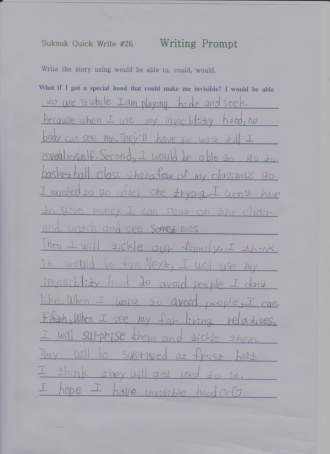 Suknuk Quick Write #26 Writing Prompt
Write the story using would be able to, could, would.
What if I got a special hood that could make me invisible? I would be able
to use it while I am playing hide and seek.
Because when I use my invicibliity hood, no
body can see me. They'll have to wait till I
reveal myself. Second, I would be able to go to
basketball class few of my classmate go.
I wanted to go after she trying. I won't have
to give money. I can seat on the chair
and watch and see sometimes.
Then I will tickle our family. I think
it would be fun. Next, I will use my
invisiblity hood to avoid people I don't
like. When I want to avoid people, I can
When I see my far living relatives,
I will surprise them and tickle them.
They will be suprised at frist but
I think they will get used to it.
I hope I have invisible hood